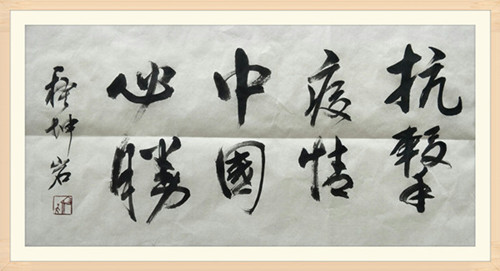 抗擊
疫情
中國
必勝
坤岩